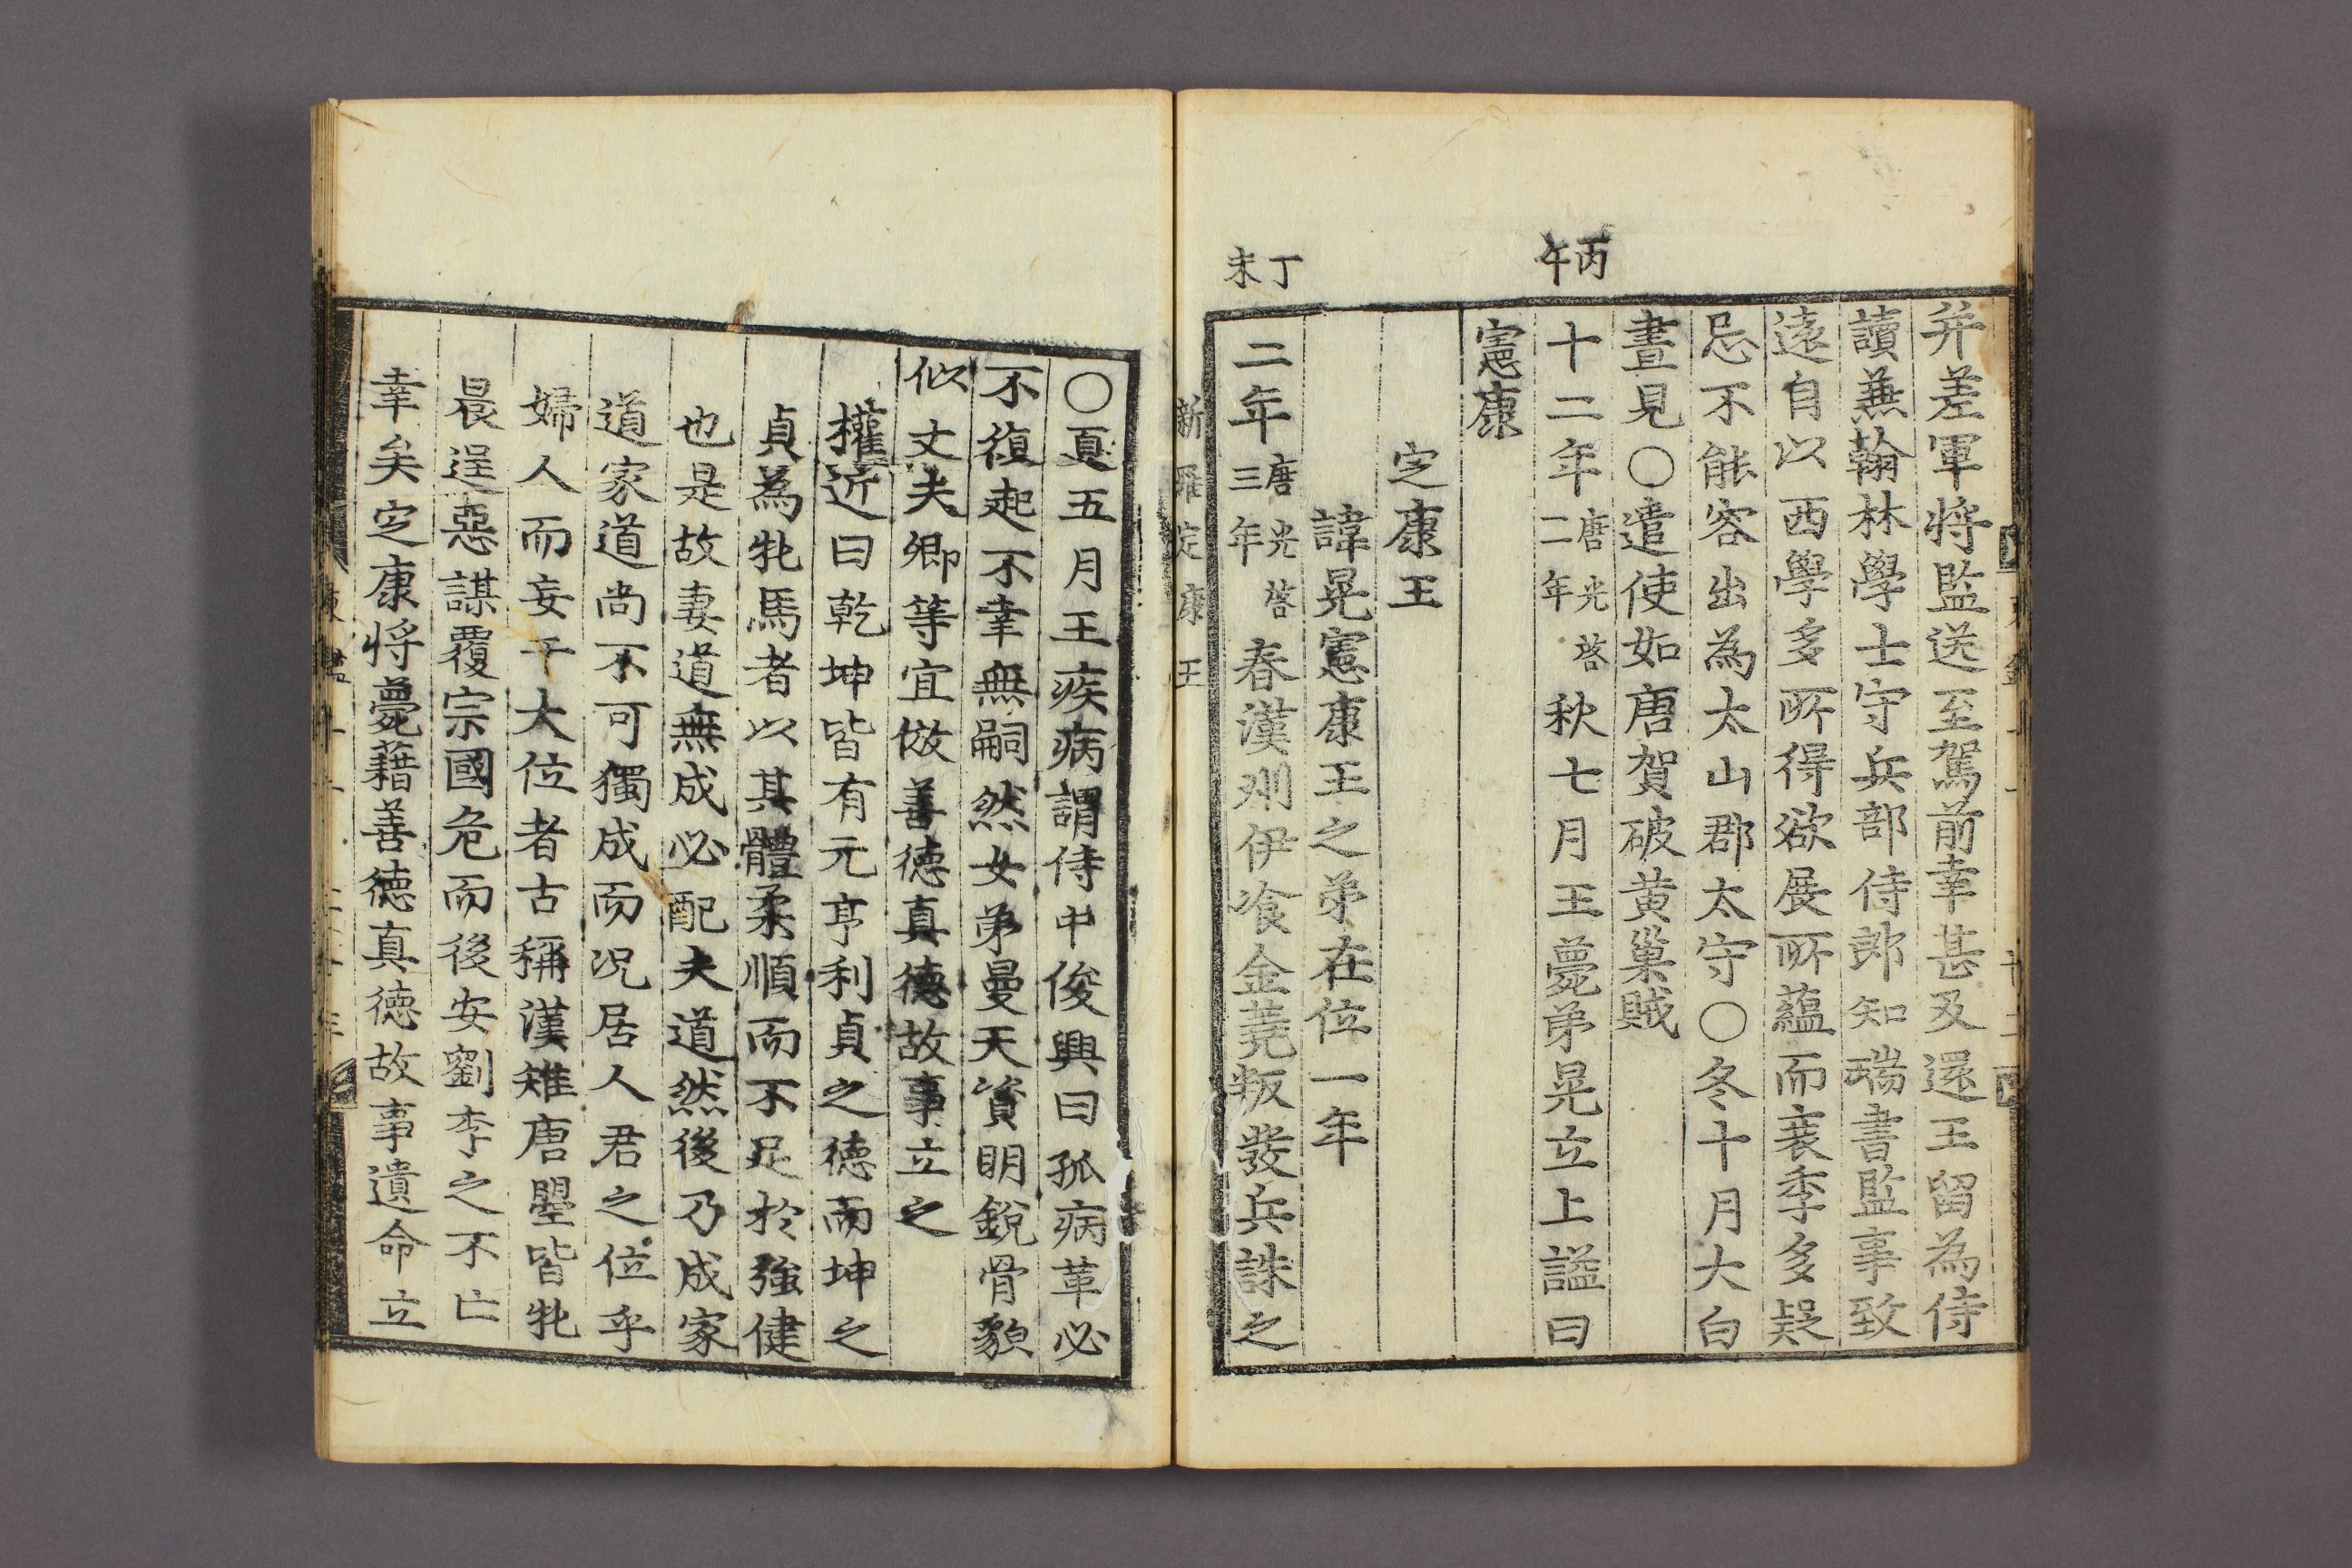 丙午
丁未
并差軍將監送至駕前幸甚及還王留為侍
讀兼翰林學士守兵部侍郎知瑞書監事致
遠自以西學多所得欲展所蘊而衰季多疑
忌不能容出為太山郡太守○冬十月大白
晝見○遣使如唐賀破黄巢賊
十二年唐光啓二年秋七月王薨弟晃立上謚曰
憲康
定康王
諱晃憲康王之弟在位一年
二年唐光啓三年春漢州伊飡金蕘叛發兵誅之
新羅定康王
○夏五月王疾病謂侍中俊興曰孤病革必
不復起不幸無嗣然女弟曼天資明銳骨貌
似丈夫卿等宜倣善德真德故事立之
權近曰乾坤皆有元亨利貞之德而坤之
貞為牝馬者以其體柔順而不足於強健
也是故妻道無成必配夫道然後乃成家
道家道尚不可獨成而况居人君之位乎
婦人而妄干大位者古稱漢雉唐曌皆牝
晨逞惡謀覆宗國危而後安劉李之不亡
幸矣定康將薨藉善德真德故事遺命立